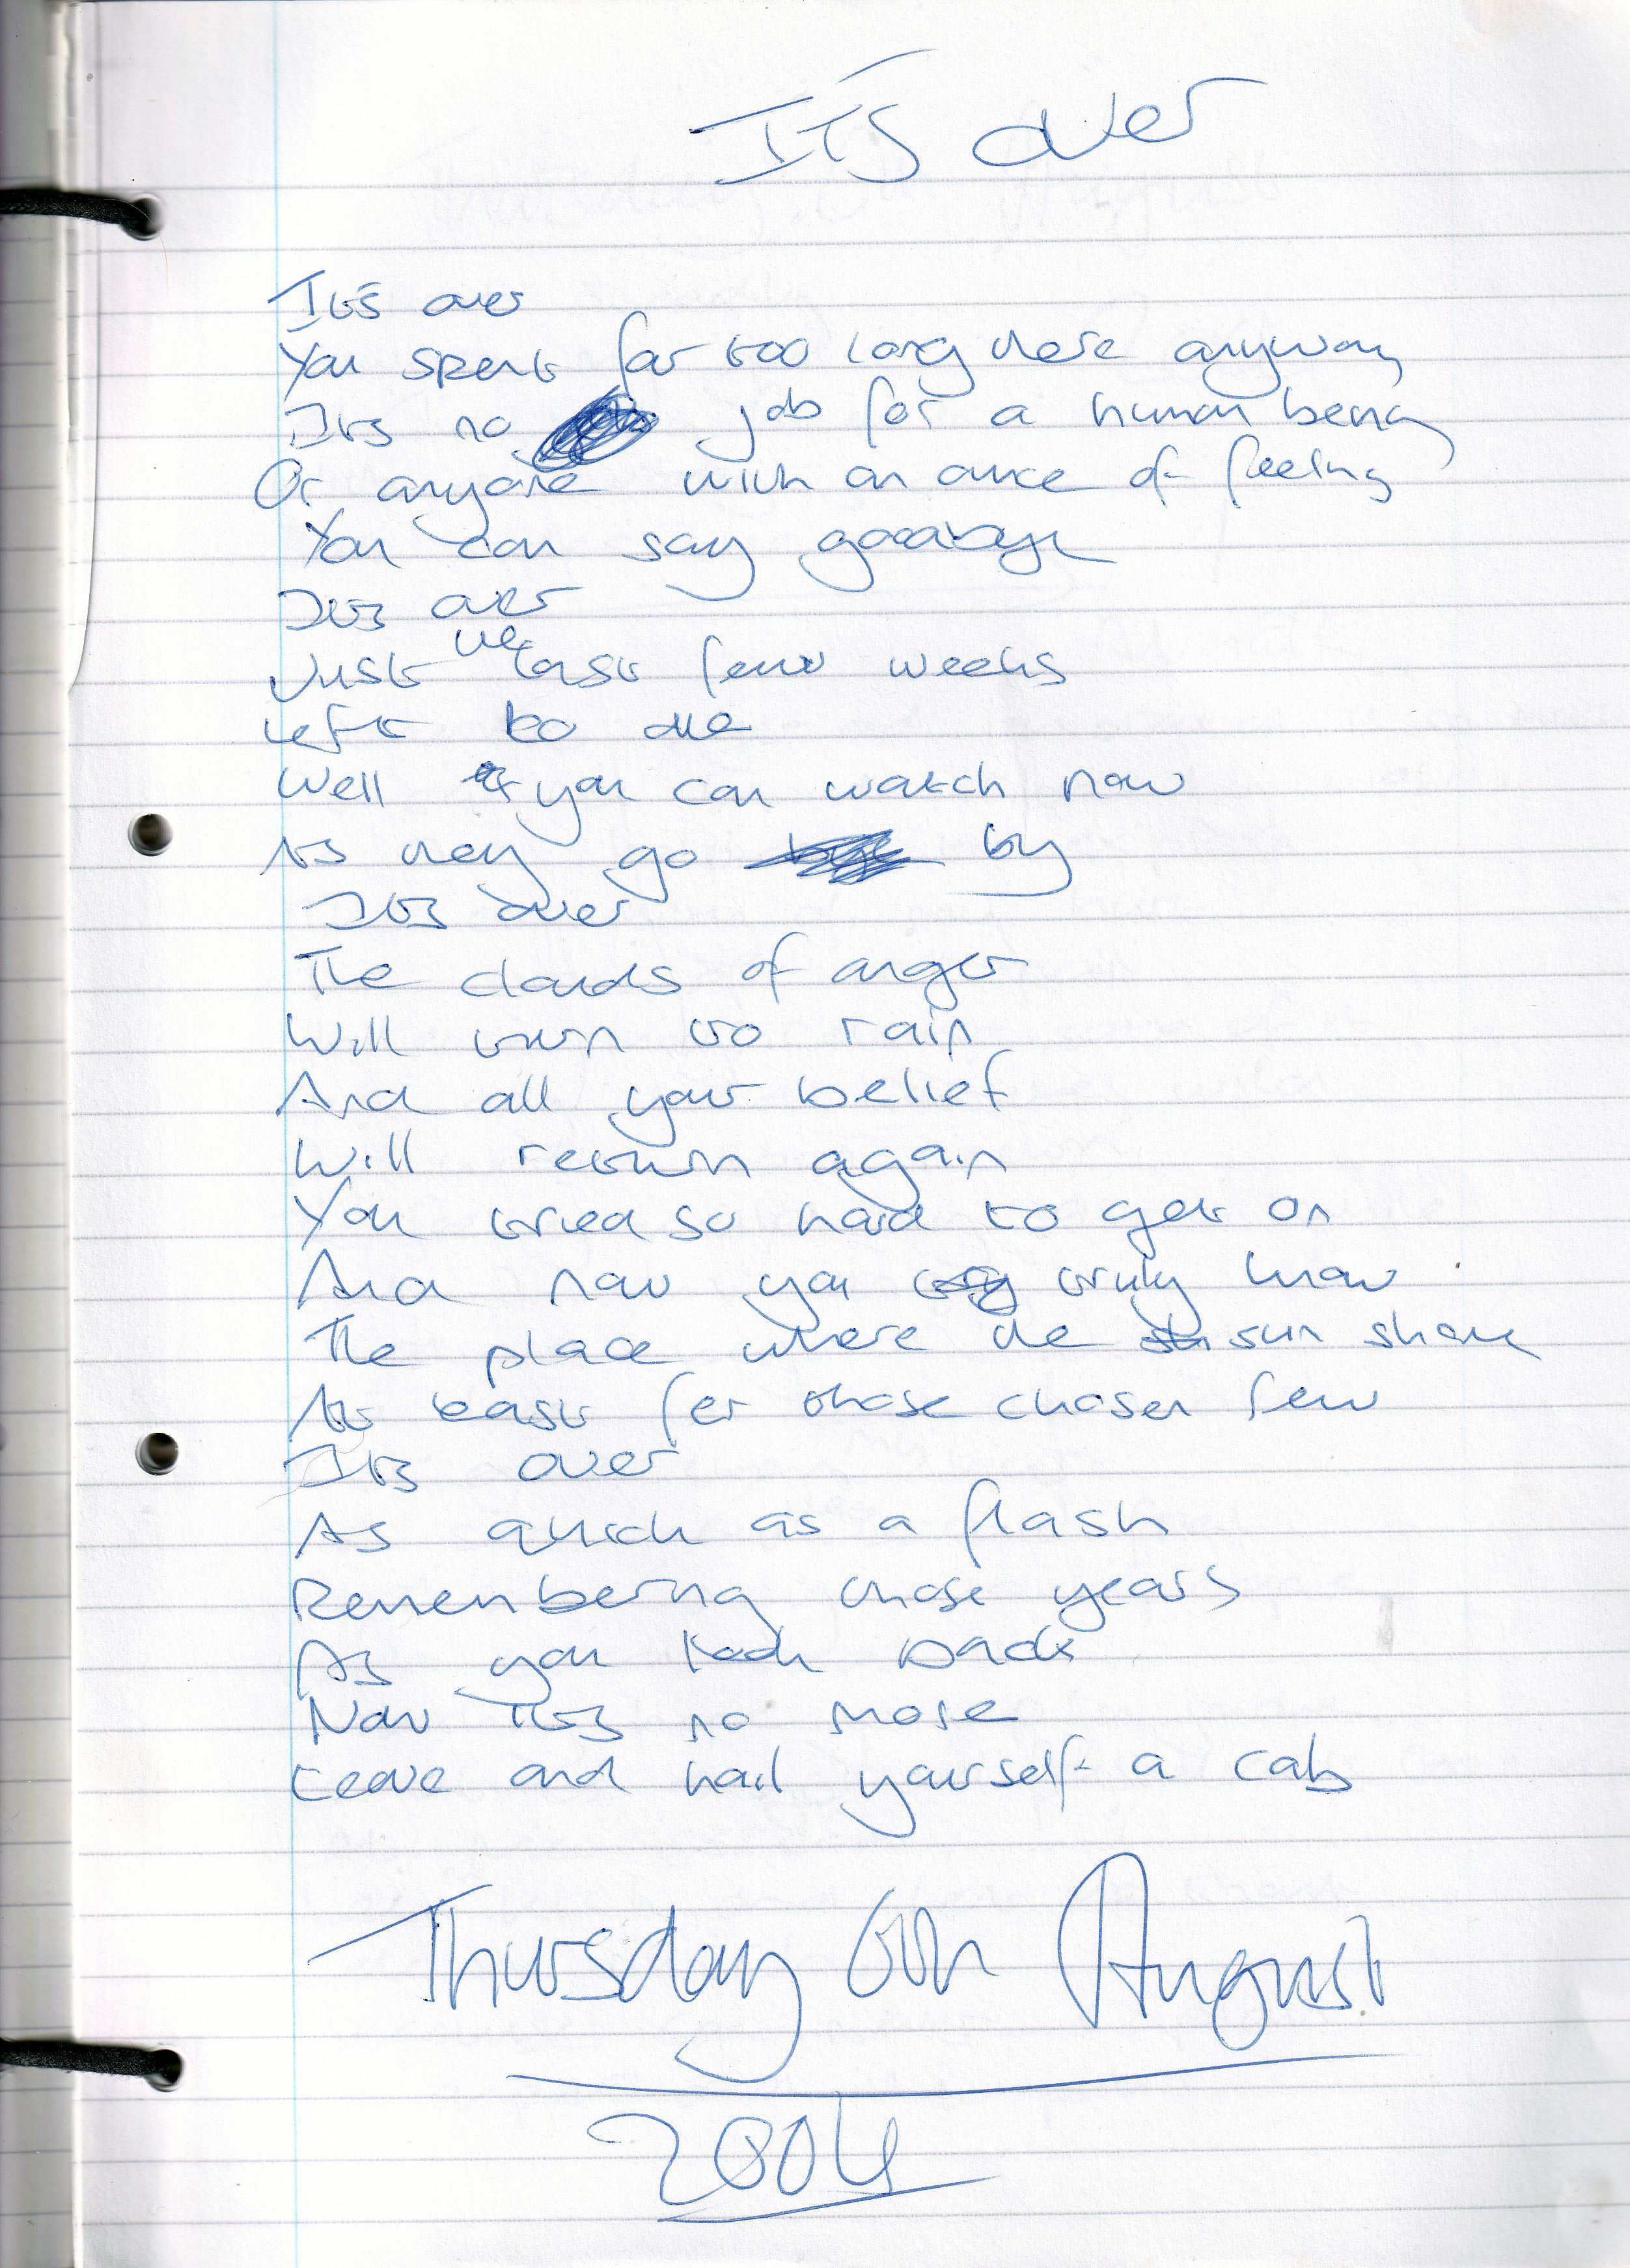 It's over
It's over
You spent far too long there anyway
Its no job for a human being
Or anyone with an ounce of feeling
You can say goodbye
Its over
Just the last few weeks
Left to die
Well you can watch now
As they go by
Its over
The clouds of anger
Will turn to rain
And all your belief
Will return again
You tried so hard to get on
And now you truly know
The place where the sun shone
At least for those chosen few
Its over
As quick as a flash
Remembering those years
As you look back
Now Its no more
Leave and hail yourself a cab
Thursday 6th August
2004